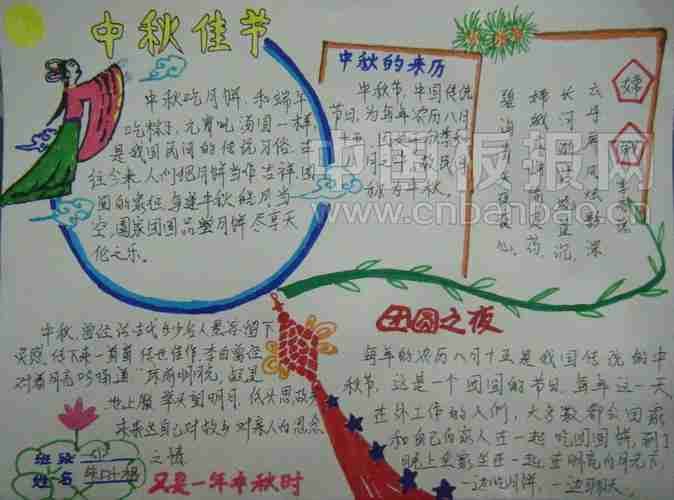 中秋佳节
中秋吃月饼,和端午
吃粽子,元宵吃汤圆一样,
是我国民间的传统习俗。古
往今来,人们把月饼当作吉祥、团
圆的象征。每逢中秋,皓月当
空,阖家团圆,品饼月饼尽享天
伦之乐。
中秋的来历
中秋节,中国传统
节日,为每年农历八月
称为中秋。
嫦娥
云母屏风烛影深
长河渐落
沉
嫦娥应悔偷灵药
碧海青天夜夜心。
中国板报网
www.cnbanbao.cn
中秋,曾经
灵感,传下来一首首传世佳作,李白曾在
对着月亮吟诵道“床前明月光,疑是
地上霜 举头望明月,低头思故乡
来表达自己对故乡对亲人的思念
之情
又是一年中秋时
班级
姓名
团圆之夜
每年的农历八月十五是我国传统的中
秋节,这是一个团圆的节日,每年这一天
在外工作的人们,大多数都会回家
和自己的家人在一起吃团圆饼,到了
晚上全家坐在一起,在明亮的月光下
一边吃月饼,一边聊天。